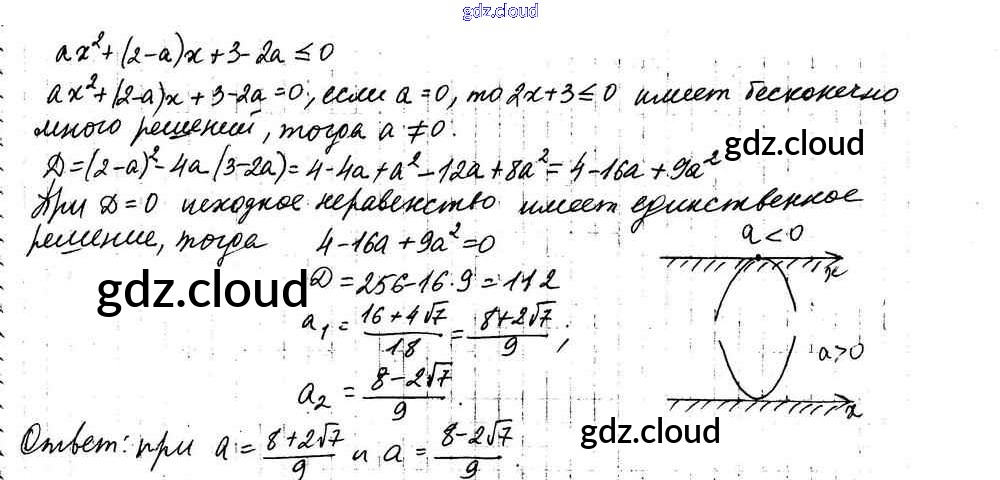 gdz.cloud
ax² + (2-a)x + 3-2a ≤ 0
ax² + (2-a)x + 3-2a = 0, если a = 0, то 2x+3 ≤ 0 имеет бесконечно
много решений, тогда a ≠ 0.
gdz.cloud
D = (2-a)² - 4a(3-2a) = 4-4a+a²-12a+8a² = 4-16a+9a²
При D=0 исходное неравенство имеет единственное
решение, тогда 4-16a+9a²=0
a<0
x
gdz.cloud
D = 256-16·9 = 112
a₁ = (16+4√7)/18 = (8+2√7)/9;
a>0
a₂ = (8-2√7)/9.
x
Ответ: при a = (8+2√7)/9 и a = (8-2√7)/9.
gdz.cloud